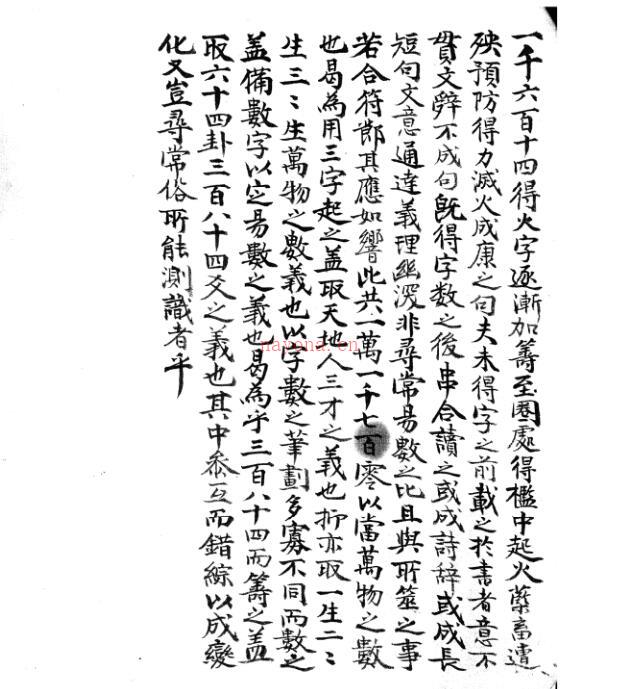 一千六百十四得火字逐漸加籌至圈處得檻中起火藥畜遭
殃預防得力滅火成康之句夫未得字之前載之於書者意不
貫文辭不成句旣得字数之後串合讀之或成詩辞或成長
短句文意通達義理幽深非尋常易數之比且與所筮之事
若合符節其應如響此共一萬一千七百零以當萬物之數
也曷為用三字起之盖取天地人三才之義也抑亦取一生二〻
生三〻生萬物之數義也以字數之筆劃多寡不同而數之
盖備數字以定易數之義也曷為乎三百八十四而籌之盖
取六十四卦三百八十四爻之義也其中叅互而錯綜以成變
化又豈尋常俗所能測識者乎
nayona.cn